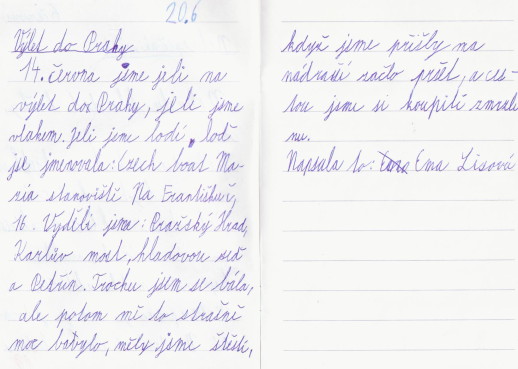 20.6
Výlet do Prahy
14. června jsme jeli na
výlet do Prahy, jeli jsme
vlakem. Jeli jsme lodí, loď
jse jmenovala: Czech boat Ma-
ria stanoviště Na Františku,
16. Vyděli jsme: Pražský Hrad,
Karlův most, hladovou zeď
a Petřín. Trochu jsem se bála,
ale potom mě to strašně
moc babylo, měly jsme štěstí,
když jsme přišly na
nádraží začlo pršet, a ces-
tou jsme si koupili zmrzli
nu.
Napsala to: Ema Lisová